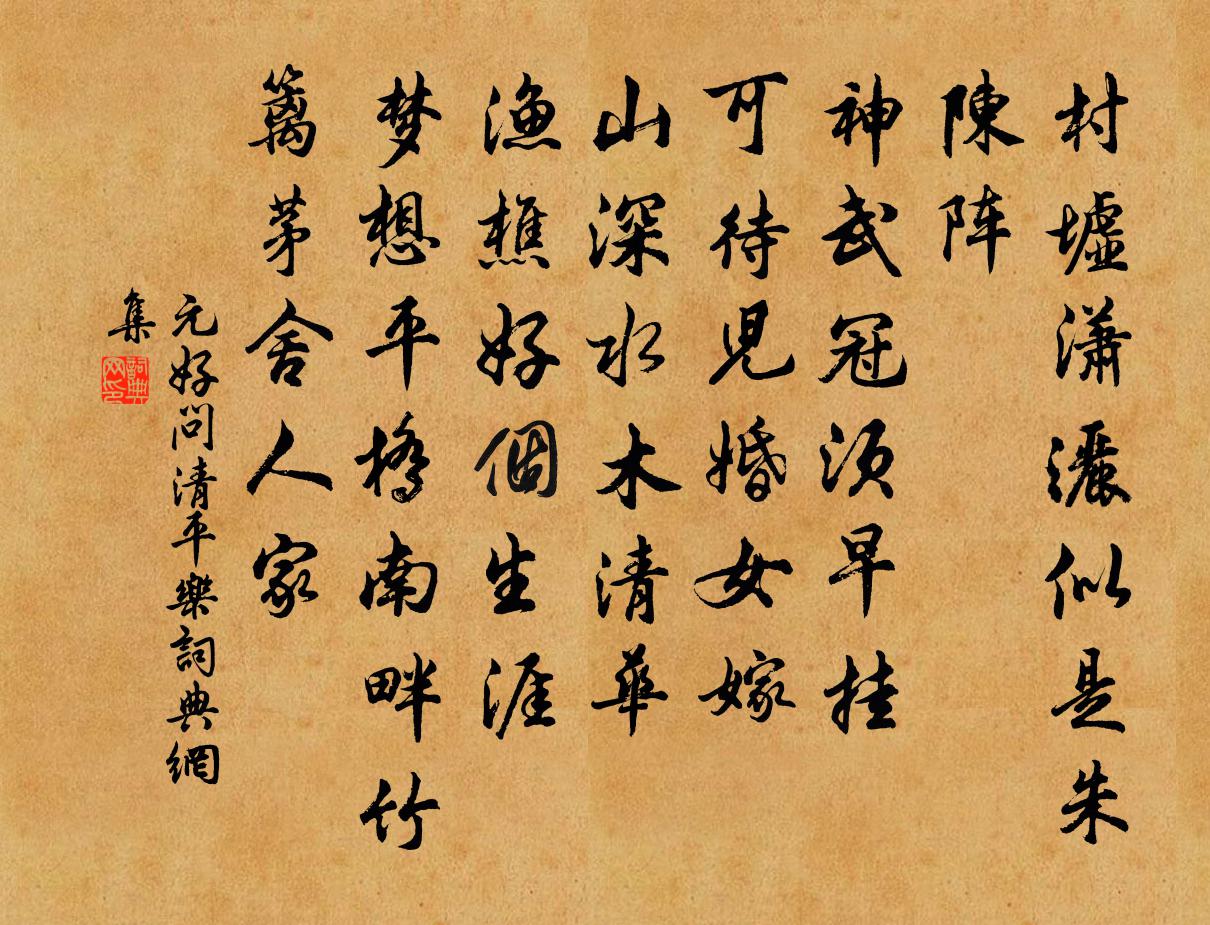 村墟潇灑似是朱
陳阵
神武冠须早挂
可待児婚女嫁
山深水木清華
渔樵好個生涯
梦想平橋南畔竹
篱茅舍人家
元好问清平樂詞典網
集
詞典网印